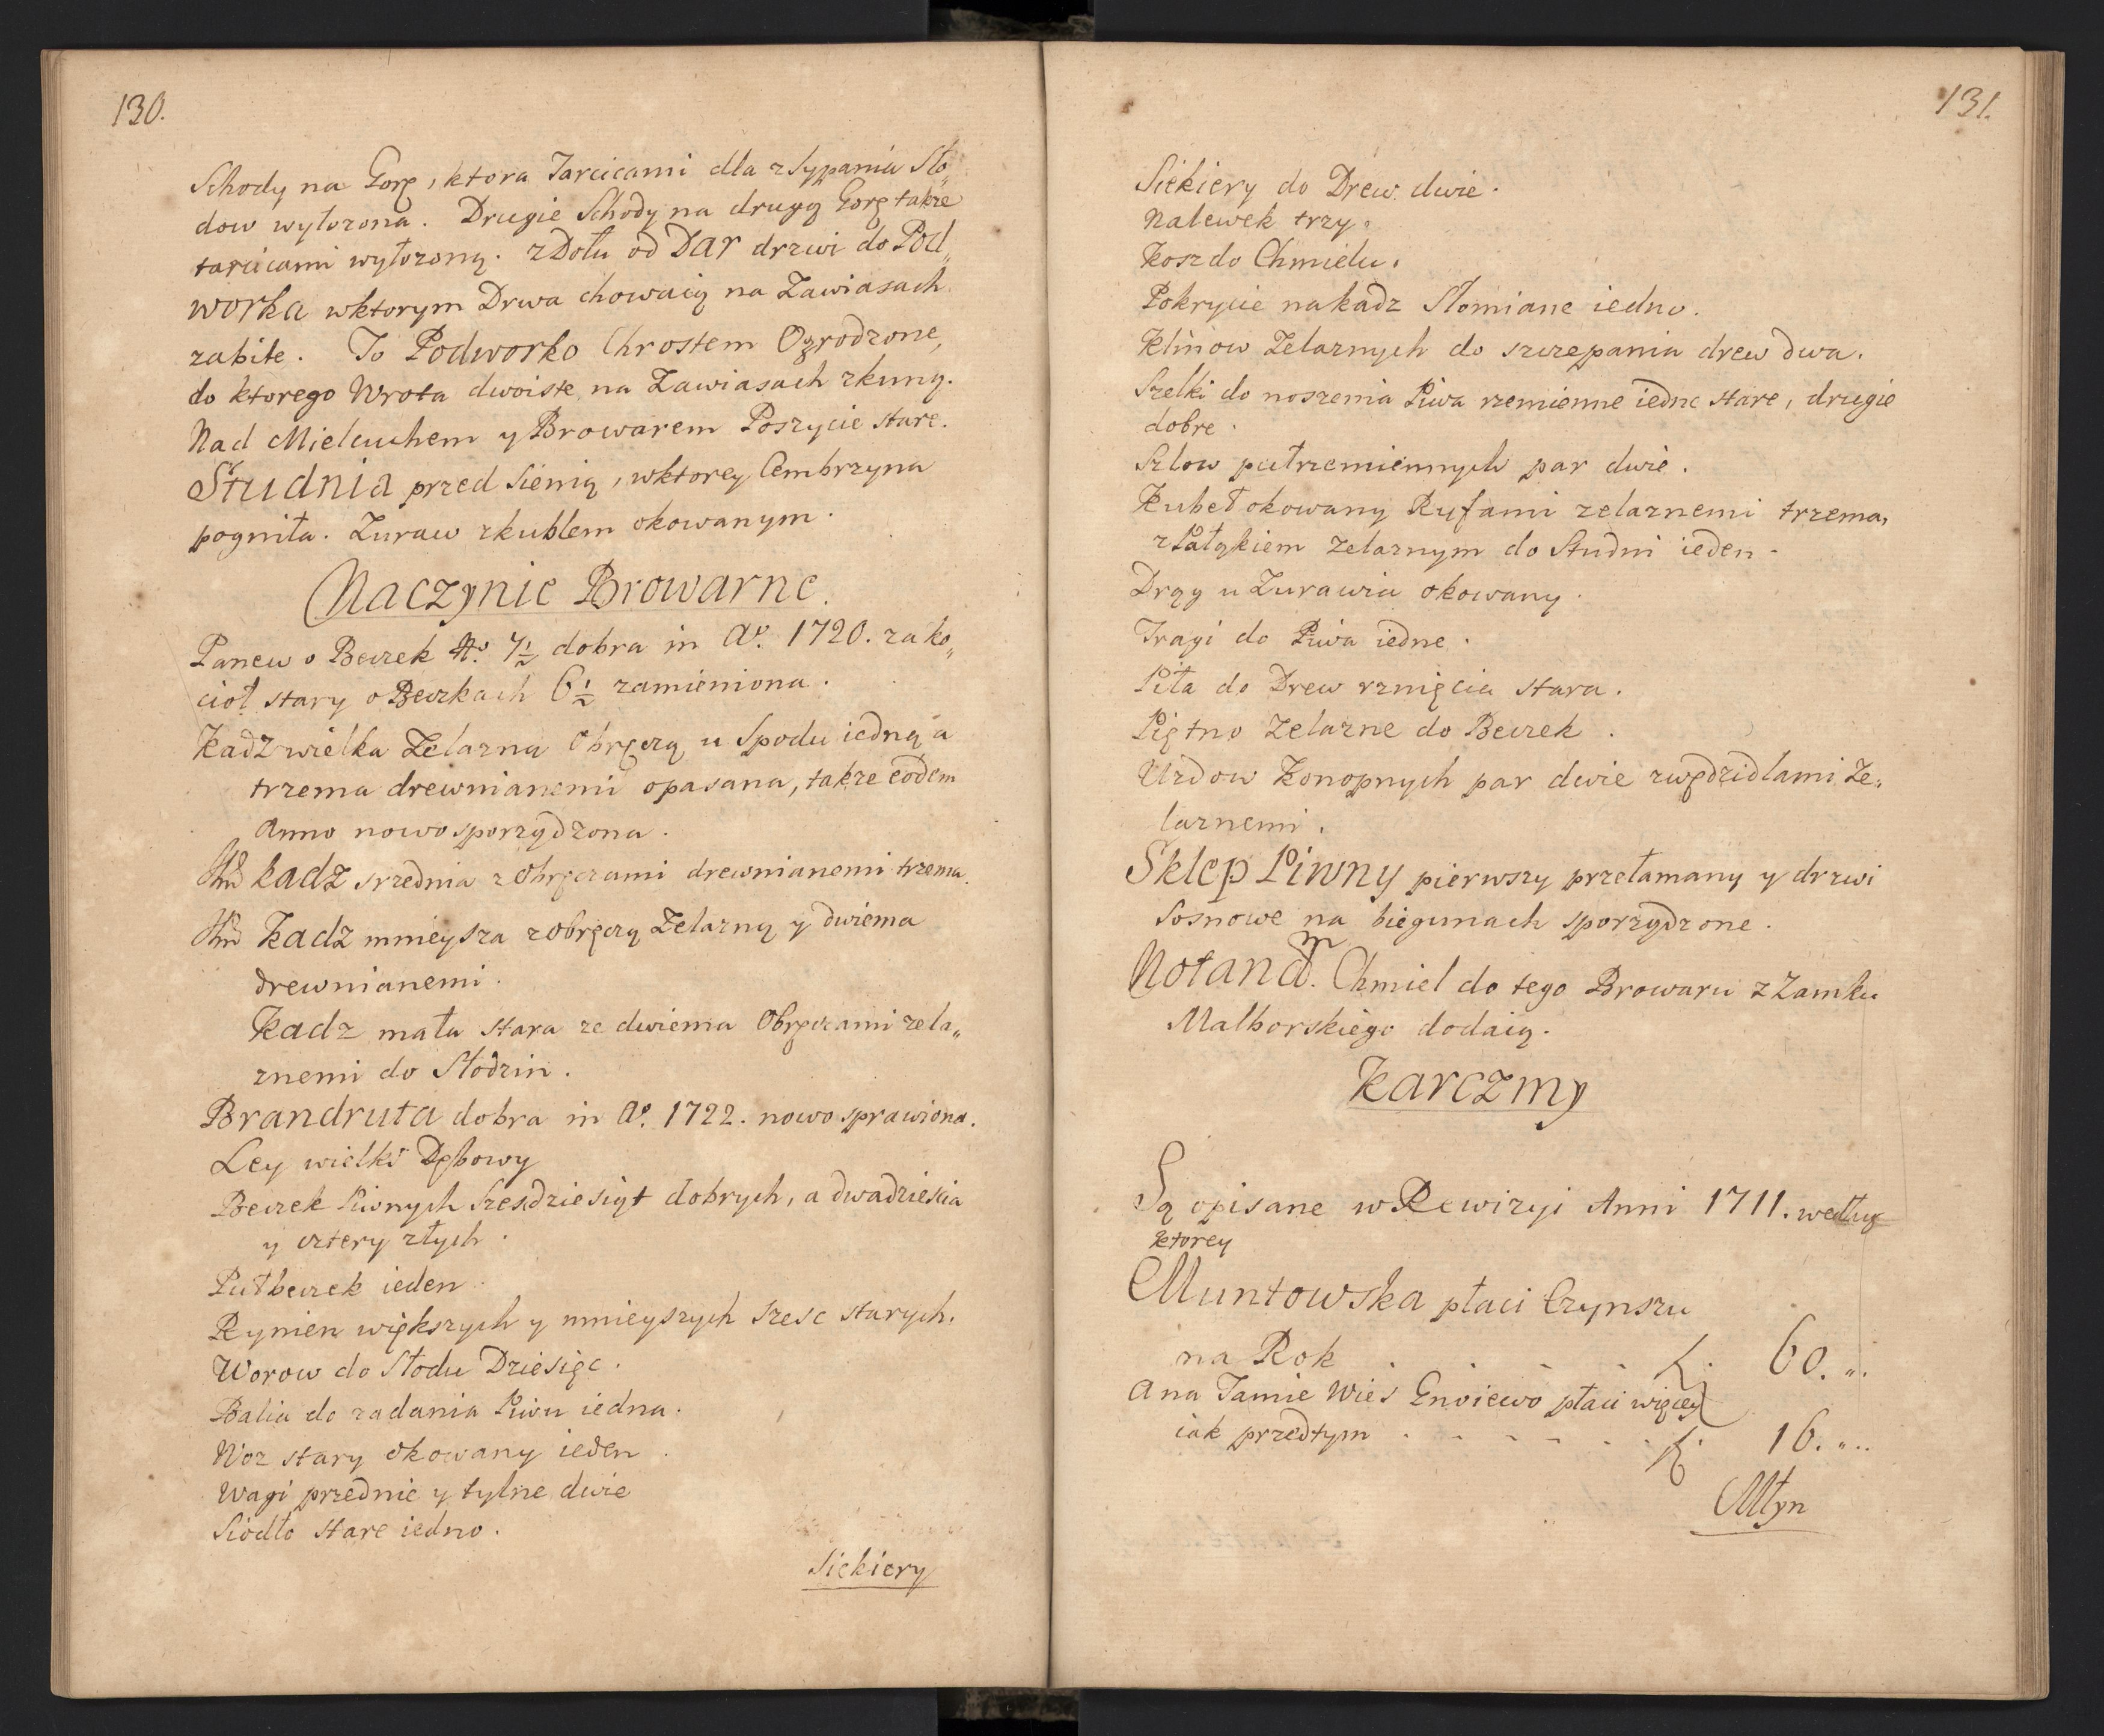 130.
Schody na Gorę, ktora Tarcicami dla zsypania Sło„
dow wyłozona. Drugie Schody na drugą Gorę takze
tarcicami wyłozoną. z Dołu od Dar drzwi do Pod„
worka wktorym Drwa chowaią na Zawiasach
zabite. To Podworko Chrostem Ogrodzone,
do ktorego Wrota dwoiste na Zawiasach zkuną.
Nad Mielcuchem y Browarem Poszycie stare.
Studnia przed Sienią, wktorey Cembrzyna
pogniła. Zuraw zkublem okowanym.
Naczynie Browarne.
Panew o Beczek No. 7½ dobra in Ao. 1720. za ko„
cioł stary o Beczkach 6½ zamieniona.
Kadz wielka Zelazną Obręczą u Spodu iedną a
trzema drewnianemi opasana, takze eodem
Anno nowo sporządzona.
Kadz srzednia z Obręczami drewnianemi trzema.
Kadz mnieysza z obręczą Zelazną y dwiema
drewnianemi.
Kadz mała stara ze dwiema Obręczami zela„
znemi do Słodzin.
Brandruta dobra in Ao. 1722. nowo sprawiona.
Ley wielki Dębowy
Beczek Piwnych Szesdziesiąt dobrych, a dwadziescia
y cztery złych.
Pułbeczek ieden.
Rynien większych y mnieyszych szesc starych.
Worow do Słodu Dziesięc.
Balia do zadania Piwu iedna.
Woz stary okowany ieden.
Wagi przednie y tylne dwie
Siodło stare iedno.
Siekiery
131.
Siekiery do Drew dwie.
Nalewek trzy.
Kosz do Chmielu.
Pokrycie na kadz Słomiane iedno.
Klinow Zelaznych do szczepania drew dwa.
Szelki do noszenia Piwa rzemienne iedne stare, drugie
dobre.
Szlow pułrzemiennych par dwie.
Kubeł okowany Ryfami zelaznemi trzema,
z Pałąkiem zelaznym do Studni ieden.
Drąg u Zurawia okowany.
Tragi do Piwa iedne.
Piła do Drew rznięcia stara.
Piętno Zelazne do Beczek.
Uzdow Konopnych par dwie zwędzidlami Ze„
laznemi.
Sklep Piwny pierwszy przełamany y drzwi
Sosnowe na biegunach sporządzone.
Notandm. Chmiel do tego Browaru z Zamku
Malborskiego dodaią.
Karczmy
Są opisane w Rewizyi Anni 1711. według
ktorey
Muntowska płaci Czynszu
na Rok . . . . . 60. „.
A na Tamie Wies Gnoiewo płaci więcey
iak przedtym . . . . . . 16. „..
Młyn